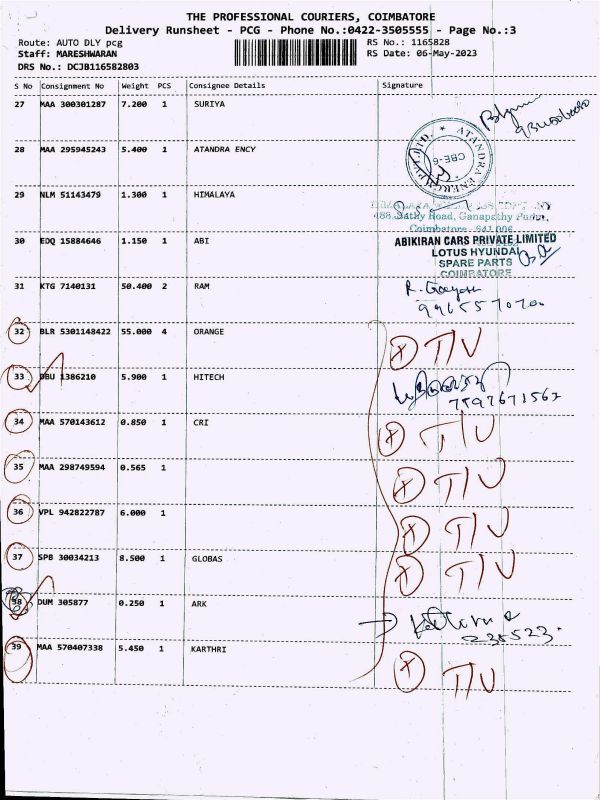 THE PROFESSIONAL COURIERS, COIMBATORE
Delivery Runsheet - PCG - Phone No.:0422-3505555 - Page No.:3
Route: AUTO DLY pcg RS No.: 1165828
Staff: MARESHWARAN RS Date: 06-May-2023
DRS No.: DCJB116582803
S No Consignment No Weight PCS Consignee Details Signature
27 MAA 300301287 7.200 1 SURIYA
28 MAA 295945243 5.400 1 ATANDRA ENCY
ATANDRA ENERGY PVT. LTD. CBE-6
29 NLM 51143479 1.300 1 HIMALAYA
Road, Ganapathy Pudur,
Coimbatore - 641 006
30 EDQ 15884646 1.150 1 ABI
ABIKIRAN CARS PRIVATE LIMITED
LOTUS HYUNDAI
SPARE PARTS
COIMBATORE
31 KTG 7140131 50.400 2 RAM
32 BLR 5301148422 55.000 4 ORANGE T/V
33 DBU 1386210 5.900 1 HITECH
7597671567
34 MAA 570143612 0.850 1 CRI T/V
35 MAA 298749594 0.565 1 T/V
36 VPL 942822787 6.000 1 T/V
37 SPB 30034213 8.500 1 GLOBAS T/V
38 DUM 305877 0.250 1 ARK
39 MAA 570407338 5.450 1 KARTHRI T/V